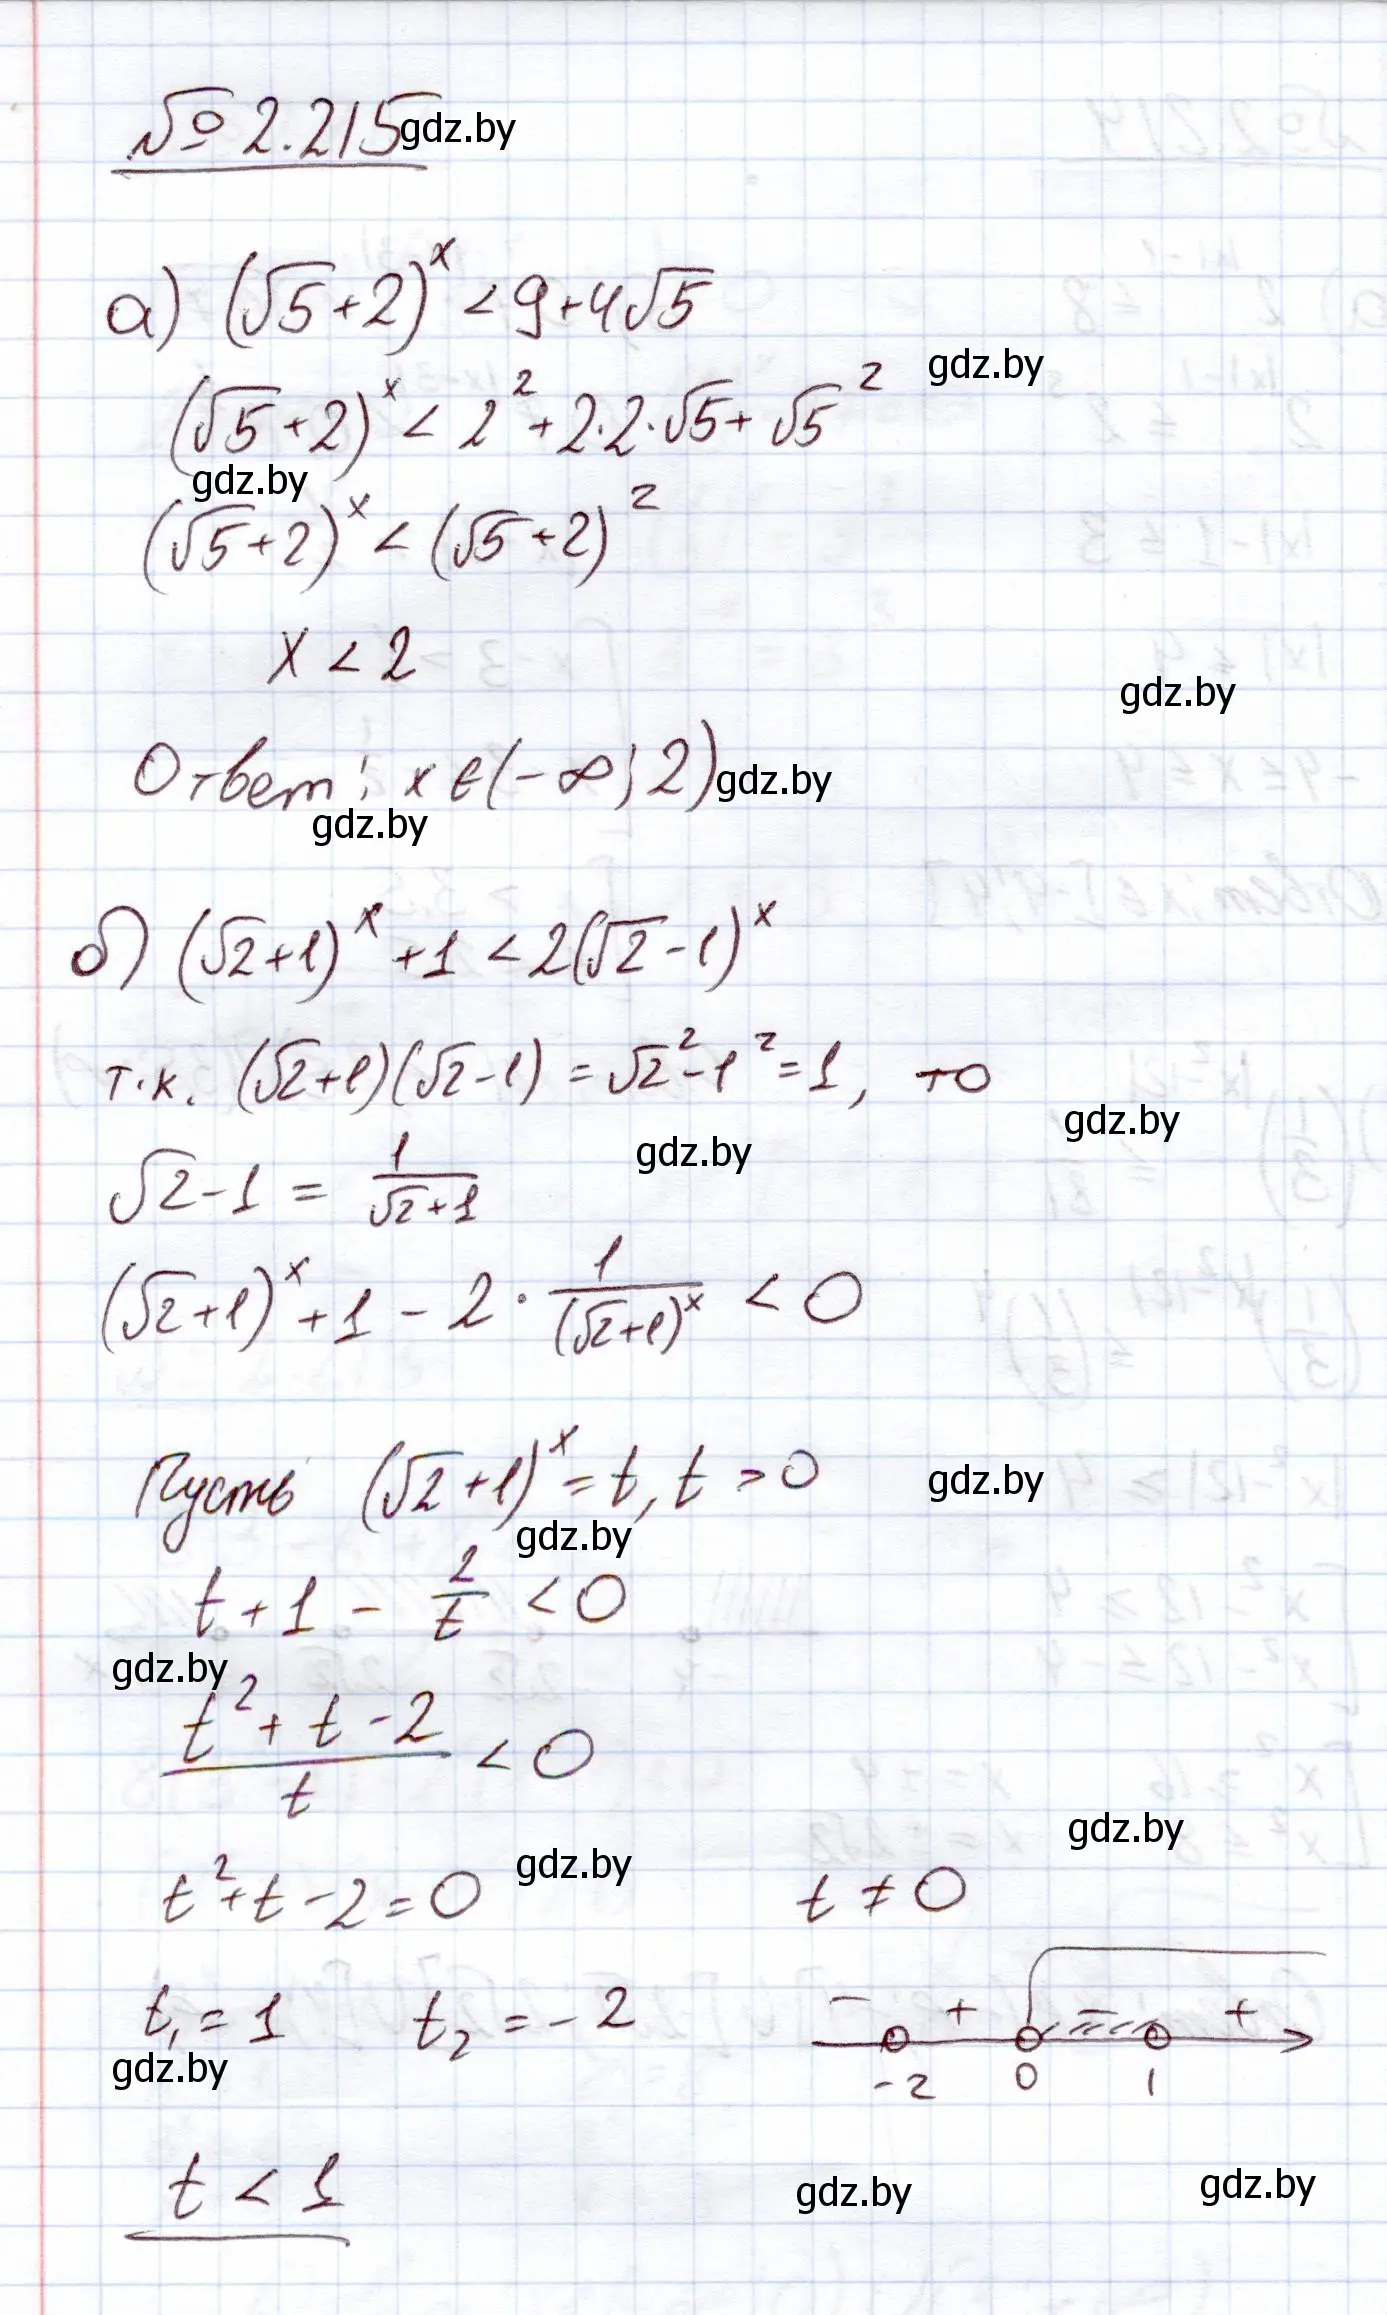 № 2.215 gdz.by
а) (√5+2)^x < 9+4√5
gdz.by
(√5+2)^x < 2^2 + 2·2·√5 + √5^2
gdz.by
(√5+2)^x < (√5+2)^2
x < 2
gdz.by
Ответ: x ∈ (-∞; 2) gdz.by
gdz.by
б) (√2+1)^x + 1 < 2(√2-1)^x
т.к. (√2+1)(√2-1) = √2^2 - 1^2 = 1, то
gdz.by
gdz.by
√2-1 = 1/(√2+1)
(√2+1)^x + 1 - 2 · 1/(√2+1)^x < 0
Пусть (√2+1)^x = t, t > 0 gdz.by
gdz.by
t + 1 - 2/t < 0
gdz.by
(t^2 + t - 2)/t < 0
gdz.by
gdz.by
t^2 + t - 2 = 0 t ≠ 0
t₁ = 1 t₂ = -2 - + - +
gdz.by -2 0 1
t < 1 gdz.by gdz.by